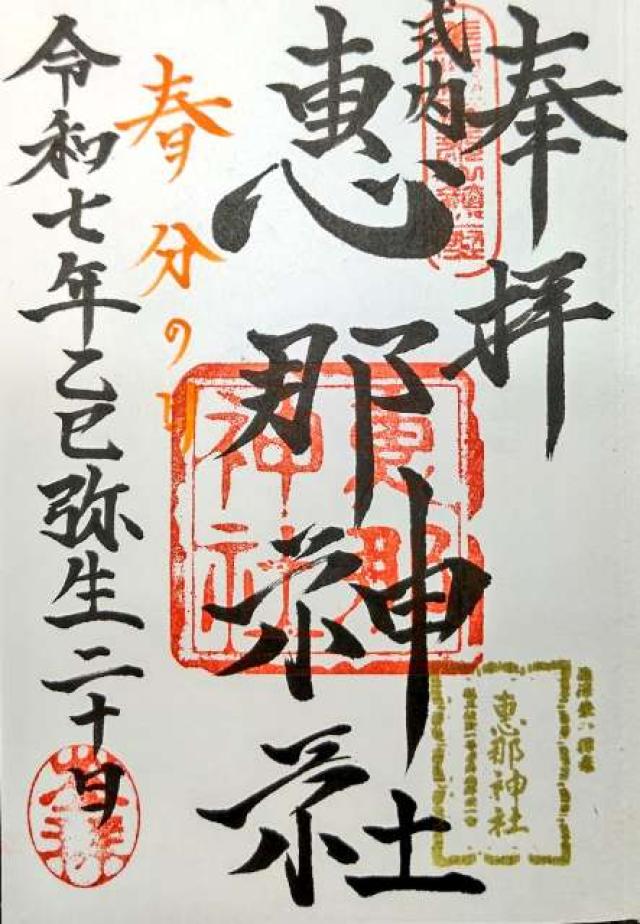 奉拝
式内
恵那神社
恵那
神社
春分の日
令和七年乙巳弥生二十日
恵那神社